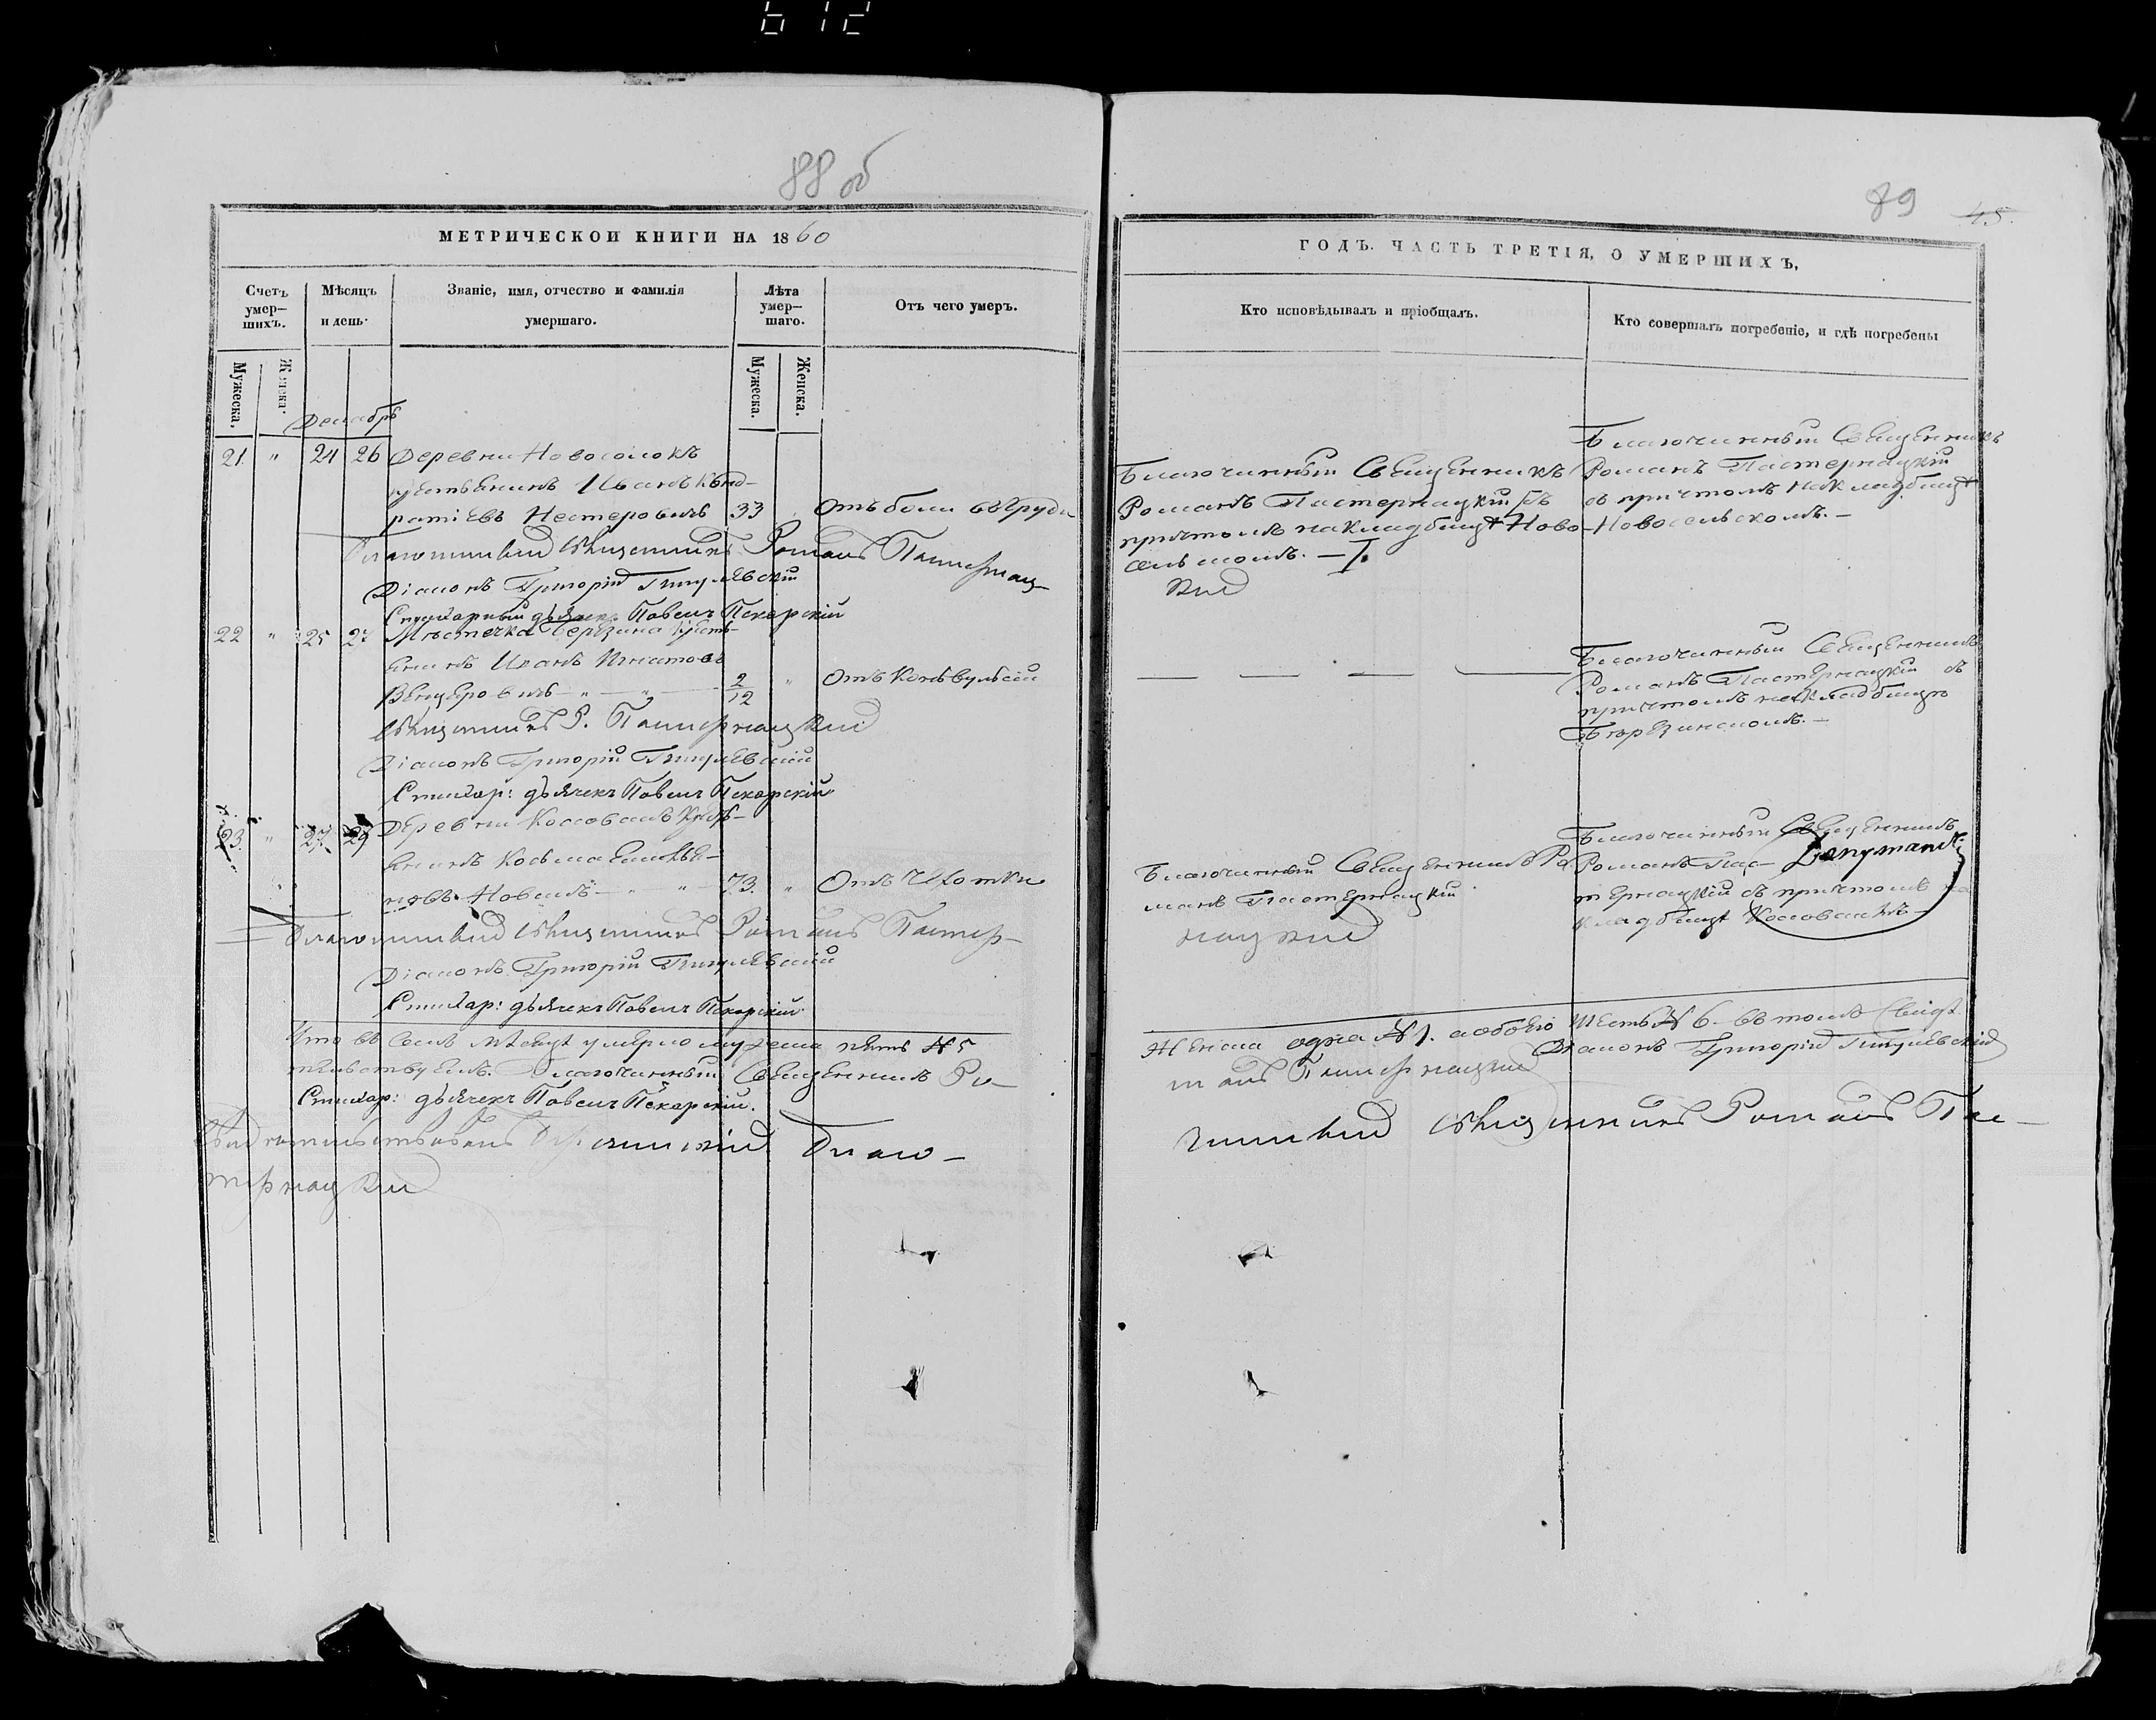 612
88 об
МЕТРИЧЕСКОЙ КНИГИ НА 1860
Счетъ умер—шихъ.
Мѣсяцъ и день.
Званіе, имя, отчество и фамилія умершаго.
Лѣта умер—шаго.
Отъ чего умеръ.
Мужеска.
Женска.
Мужеска.
Женска.
Декабрь
21 " 24 26 Деревни Новоселокъ
крестьянинъ Иванъ Конд-
ратіевъ Нестеровичъ 33 Отъ боли въ груди
Благочинный Священникъ Романъ Пастернац-
Діаконъ Григорій
Стихарный дьячекъ Павелъ Пекарскій
22 " 25 27 Мѣстечка Березина крестья-
нинъ Иванъ Игнатовъ
2/12 " Отъ конвульсіи
Священникъ Р. Пастернацкій
Діаконъ Григорій
Стихар: дьячекъ Павелъ Пекарскій
23. " 27. 29 Деревни
Косьма
73. " Отъ чахотки
Благочинный Священникъ Романъ Пастер-
Діаконъ Григорій
Стихар: дьячекъ Павелъ Пекарскій
Что въ семъ мѣсяцѣ умерло мужеска пять № 5
тельствуемъ. Благочинный Священникъ Ро-
Стихар: дьячекъ Павелъ Пекарскій.
Благо-
тернацкій
89
45.
ГОДЪ. ЧАСТЬ ТРЕТІЯ, О УМЕРШИХЪ,
Кто исповѣдывалъ и пріобщалъ.
Кто совершалъ погребеніе, и гдѣ погребены
Благочинный Священникъ
Романъ Пастернацкій съ
причтомъ на кладбищѣ Ново-
сельскомъ. —
кій
Благочинный Священникъ
Романъ Пастернацкій
съ причтомъ на кладбищѣ
Новосельскомъ. —
— — — —
Благочинный Священникъ
Романъ Пастернацкій съ
причтомъ на кладбищѣ
Березинскомъ. —
Благочинный Священникъ Ро-
манъ Пастернацкій
нацкій
Благочинный Священникъ
Романъ Пас-
тернацкій съ причтомъ на
кладбищѣ
Женска одна № 1. а обоего шесть № 6 — въ томъ свидѣ-
манъ Пастернацкій Діаконъ Григорій
чинный Священникъ Романъ Пас-